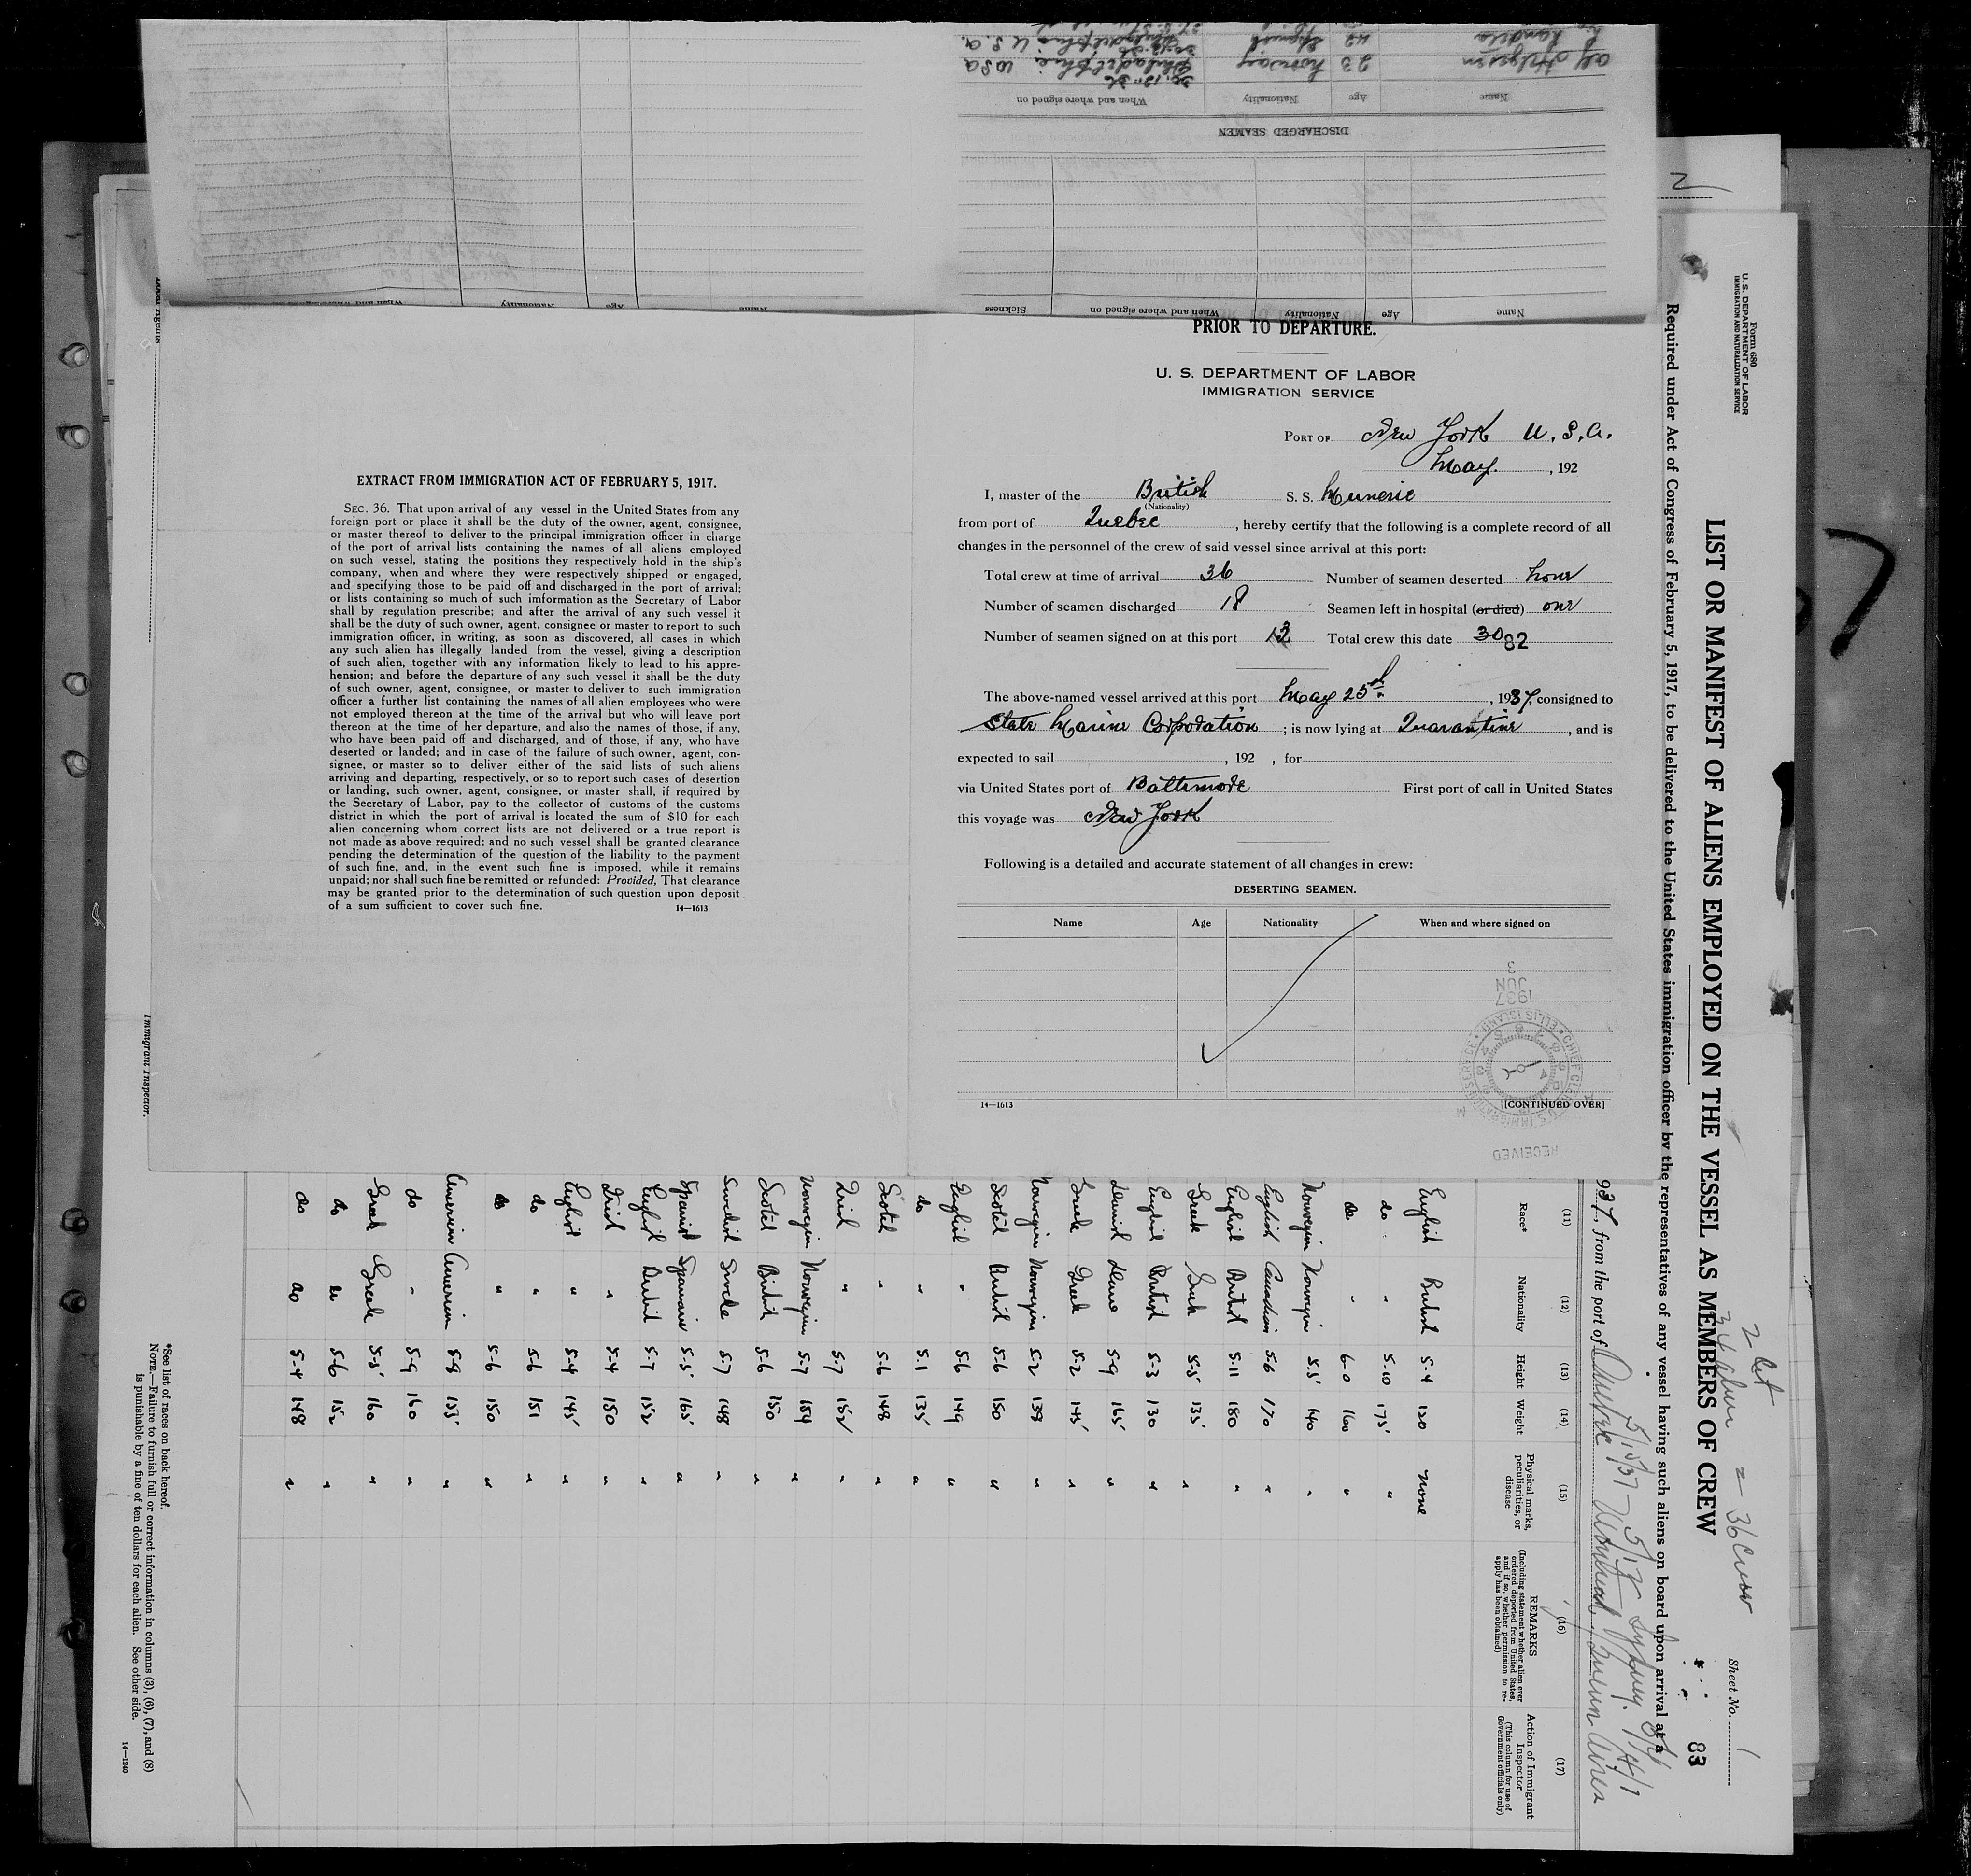 alf Helgesen 23 Norway Philadelphia U S A
Name Age Nationality When and where signed on
DISCHARGED SEAMEN
Name Age Nationality When and where signed on Sickness
Name Age Nationality When and where signed on
PRIOR TO DEPARTURE.
U. S. DEPARTMENT OF LABOR
IMMIGRATION SERVICE
PORT OF New York U.S.A.
May , 192
I, master of the British S. S.
(Nationality)
from port of Quebec , hereby certify that the following is a complete record of all
changes in the personnel of the crew of said vessel since arrival at this port:
Total crew at time of arrival 36 Number of seamen deserted none
Number of seamen discharged 18 Seamen left in hospital (or died) one
Number of seamen signed on at this port Total crew this date 30 82
The above-named vessel arrived at this port May 25th , 1937, consigned to
State Marine Corporation ; is now lying at Quarantine , and is
expected to sail , 192 , for
via United States port of Baltimore First port of call in United States
this voyage was New York
Following is a detailed and accurate statement of all changes in crew:
DESERTING SEAMEN.
Name Age Nationality When and where signed on
14—1613 [CONTINUED OVER]
RECEIVED
1937 JUN 3
EXTRACT FROM IMMIGRATION ACT OF FEBRUARY 5, 1917.
SEC. 36. That upon arrival of any vessel in the United States from any
foreign port or place it shall be the duty of the owner, agent, consignee,
or master thereof to deliver to the principal immigration officer in charge
of the port of arrival lists containing the names of all aliens employed
on such vessel, stating the positions they respectively hold in the ship's
company, when and where they were respectively shipped or engaged,
and specifying those to be paid off and discharged in the port of arrival;
or lists containing so much of such imformation as the Secretary of Labor
shall by regulation prescribe; and after the arrival of any such vessel it
shall be the duty of such owner, agent, consignee or master to report to such
immigration officer, in writing, as soon as discovered, all cases in which
any such alien has illegally landed from the vessel, giving a description
of such alien, together with any information likely to lead to his appre-
hension; and before the departure of any such vessel it shall be the duty
of such owner, agent, consignee, or master to deliver to such immigration
officer a further list containing the names of all alien employees who were
not employed thereon at the time of the arrival but who will leave port
thereon at the time of her departure, and also the names of those, if any,
who have been paid off and discharged, and of those, if any, who have
deserted or landed; and in case of the failure of such owner, agent, con-
signee, or master so to deliver either of the said lists of such aliens
arriving and departing, respectively, or so to report such cases of desertion
or landing, such owner, agent, consignee, or master shall, if required by
the Secretary of Labor, pay to the collector of customs of the customs
district in which the port of arrival is located the sum of $10 for each
alien concerning whom correct lists are not delivered or a true report is
not made as above required; and no such vessel shall be granted clearance
pending the determination of the question of the liability to the payment
of such fine, and, in the event such fine is imposed, while it remains
unpaid; nor shall such fine be remitted or refunded: Provided, That clearance
may be granted prior to the determination of such question upon deposit
of a sum sufficient to cover such fine. 14—1613
Form 680
U. S. DEPARTMENT OF LABOR
IMMIGRATION AND NATURALIZATION SERVICE
Sheet No. 1
83
= 36 Crew
LIST OR MANIFEST OF ALIENS EMPLOYED ON THE VESSEL AS MEMBERS OF CREW
Required under Act of Congress of February 5, 1917, to be delivered to the United States immigration officer by the representatives of any vessel having such aliens on board upon arrival at a
937, from the port of
(11) (12) (13) (14) (15) (16) (17)
Race* Nationality Height Weight Physical marks, peculiarities, or disease REMARKS (Including statement whether alien ever ordered deported from United States, and if so, whether permission to re-apply has been obtained) Action of Immigrant Inspector (This column for use of Government officials only)
English British 5-4 120 none
do. " 5-10 175 "
do " 6-0 160 "
Norwegian Norwegian 5-5 140 "
English Canadian 5-6 170 "
English British 5-11 180 "
Greek Greek 5-5 135 "
English British 5-3 130 "
Danish Dane 5-9 165 "
Greek Greek 5-2 145 "
Norwegian Norwegian 5-2 139 "
Scotch British 5-6 150 "
English " 5-6 149 "
do " 5-1 135 "
Scotch " 5-6 148 "
Irish " 5-7 152 "
Norwegian Norwegian 5-7 154 "
Scotch British 5-6 150 "
Swedish Swede 5-7 148 "
Spanish Spaniard 5-5 165 "
English British 5-7 152 "
Irish " 5-4 150 "
English " 5-4 145 "
do " 5-6 151 "
do " 5-6 150 "
American American 5-8 155 "
do " 5-9 160 "
Greek Greek 5-5 160 "
do do 5-6 152 "
do do 5-4 148 "
*See list of races on back hereof.
NOTE.—Failure to furnish full or correct information in columns (3), (6), (7), and (8)
is punishable by a fine of ten dollars for each alien. See other side.
14—1240
Immigrant Inspector.